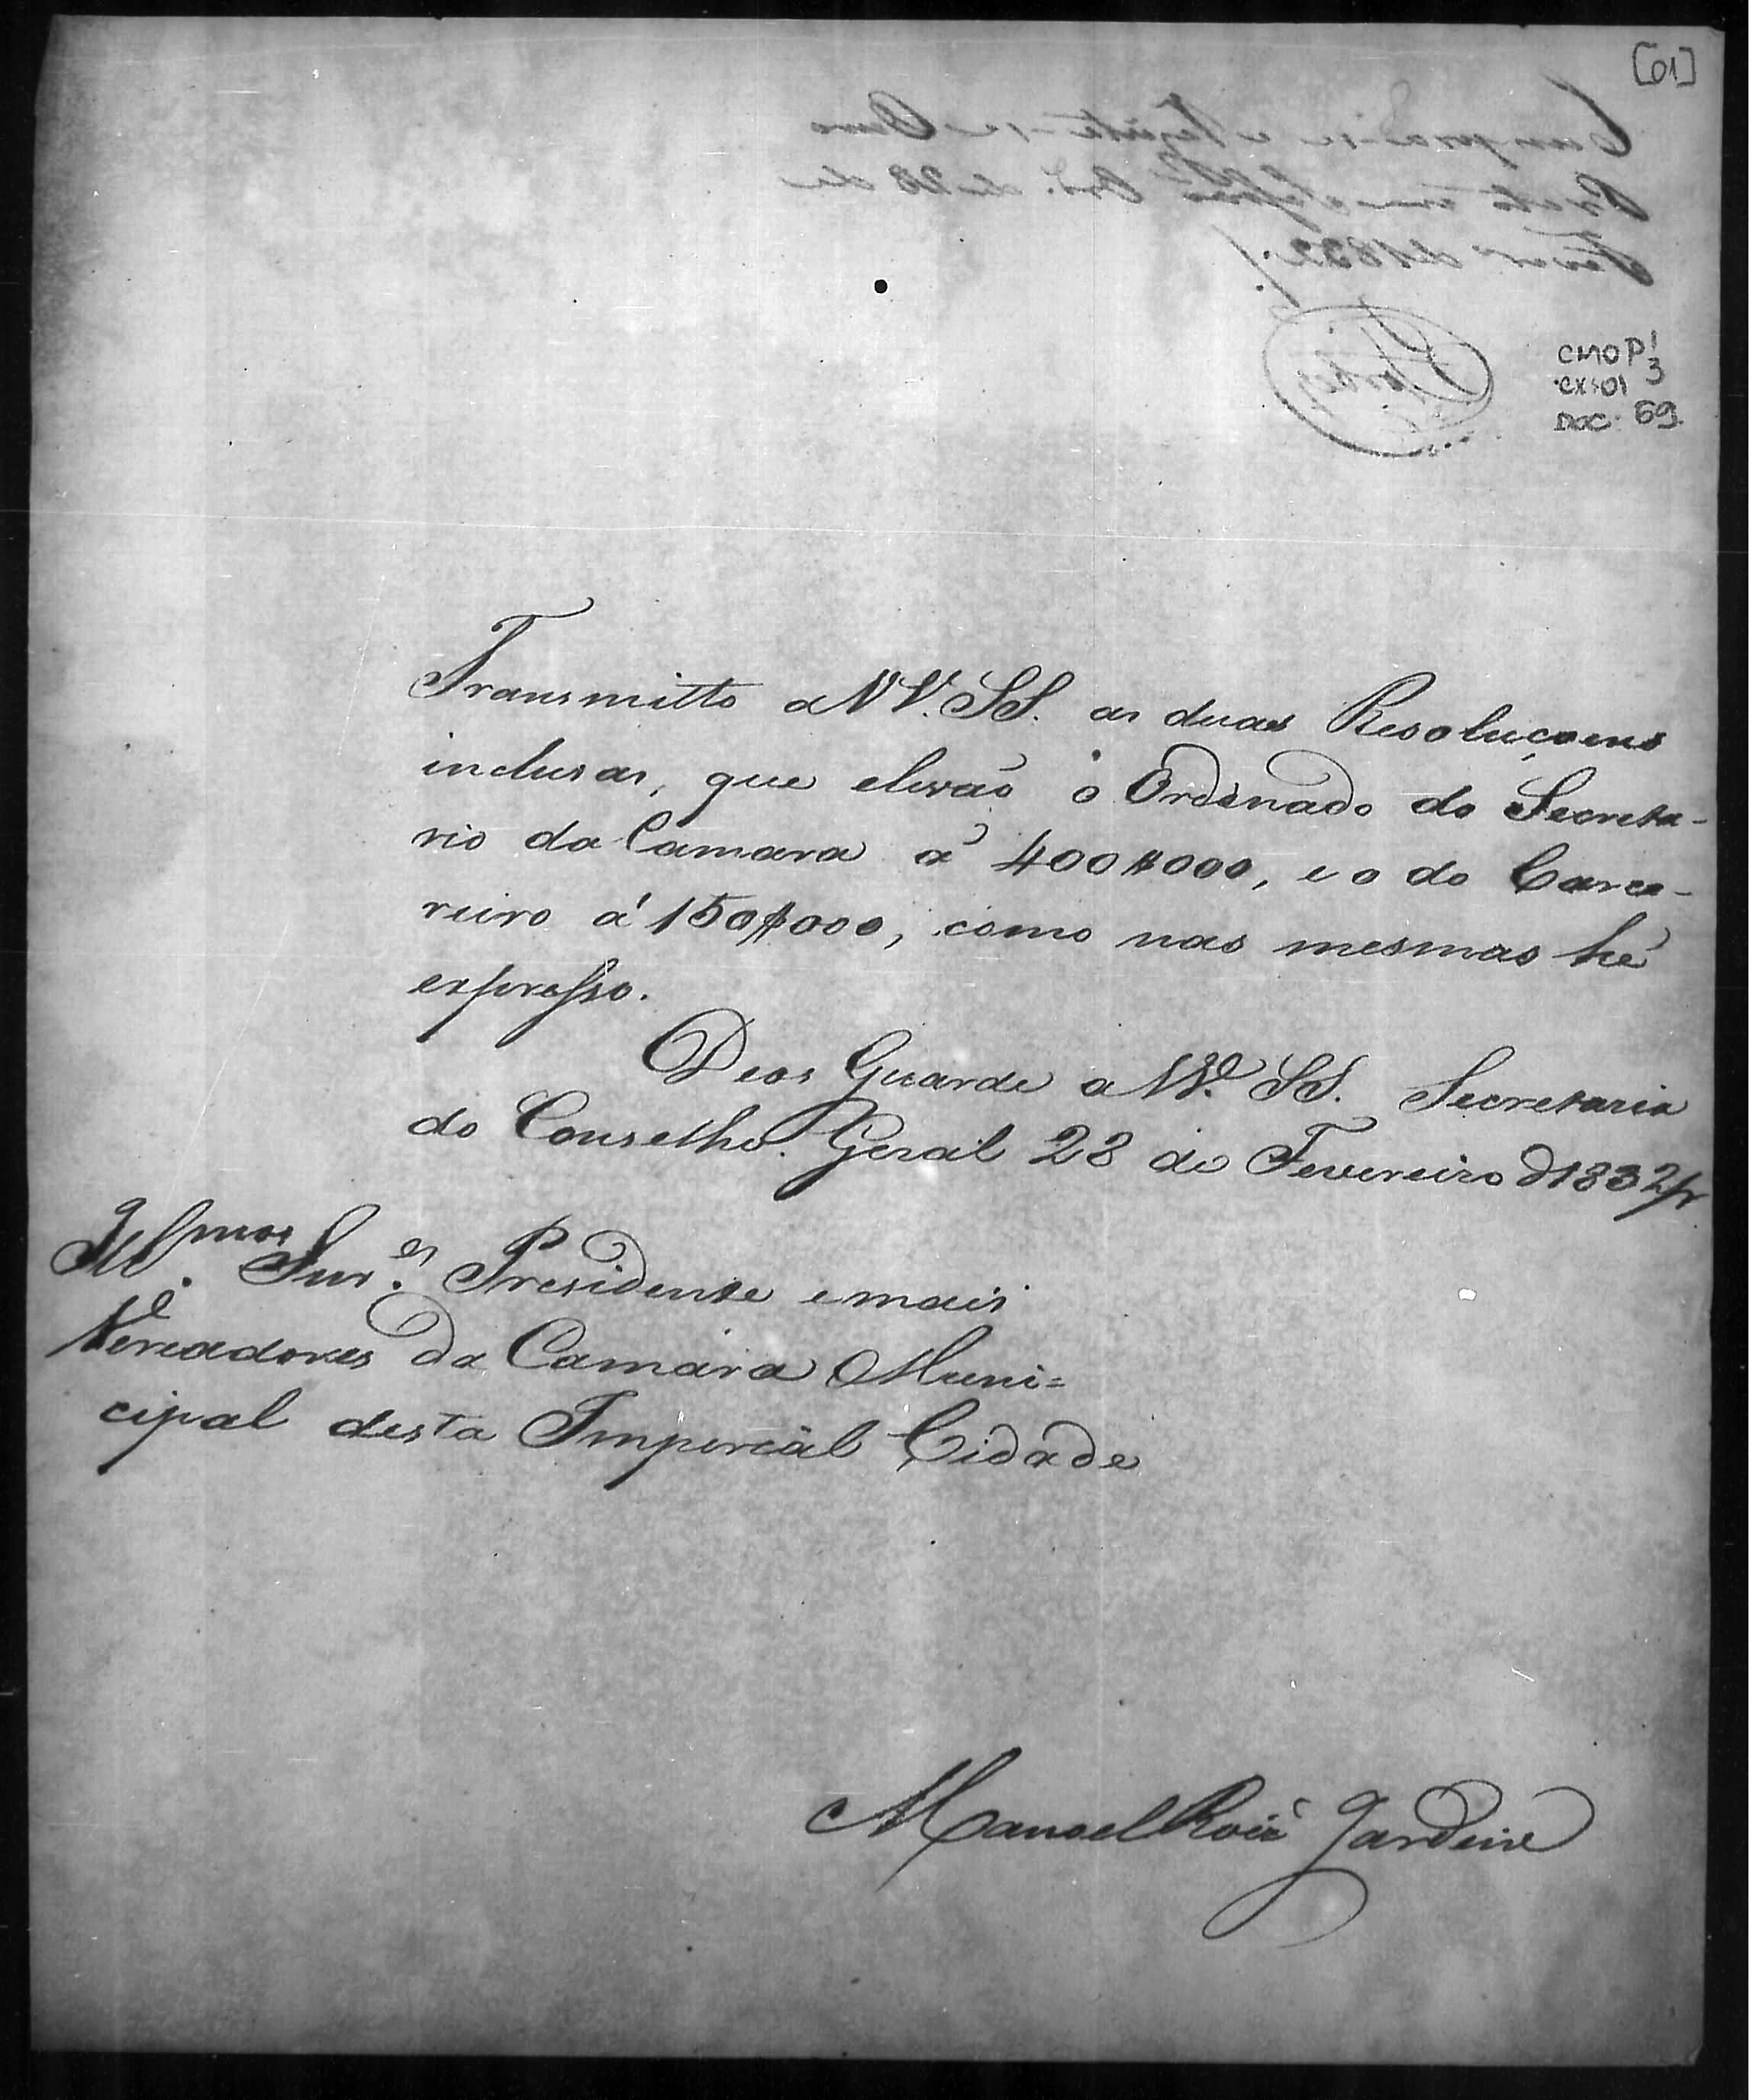 [01]
CMOP 1/3
CX: 01
DOC: 69
Transmitto a VV. SS. as duas Resoluçoens
inclusas, que elevaõ o Ordenado do Secreta-
rio da Camara á 400$000, e o do Carce-
reiro á 150$000, como nas mesmas hé
expresso.
Deos Guarde a VV. SS. Secretaria
do Conselho Geral 28 de Fevereiro d 1832
Illmos. Snres. Presidente e mais
Vereadores da Camara Muni=
cipal desta Imperial Cidade
Manoel Roiz Jardim